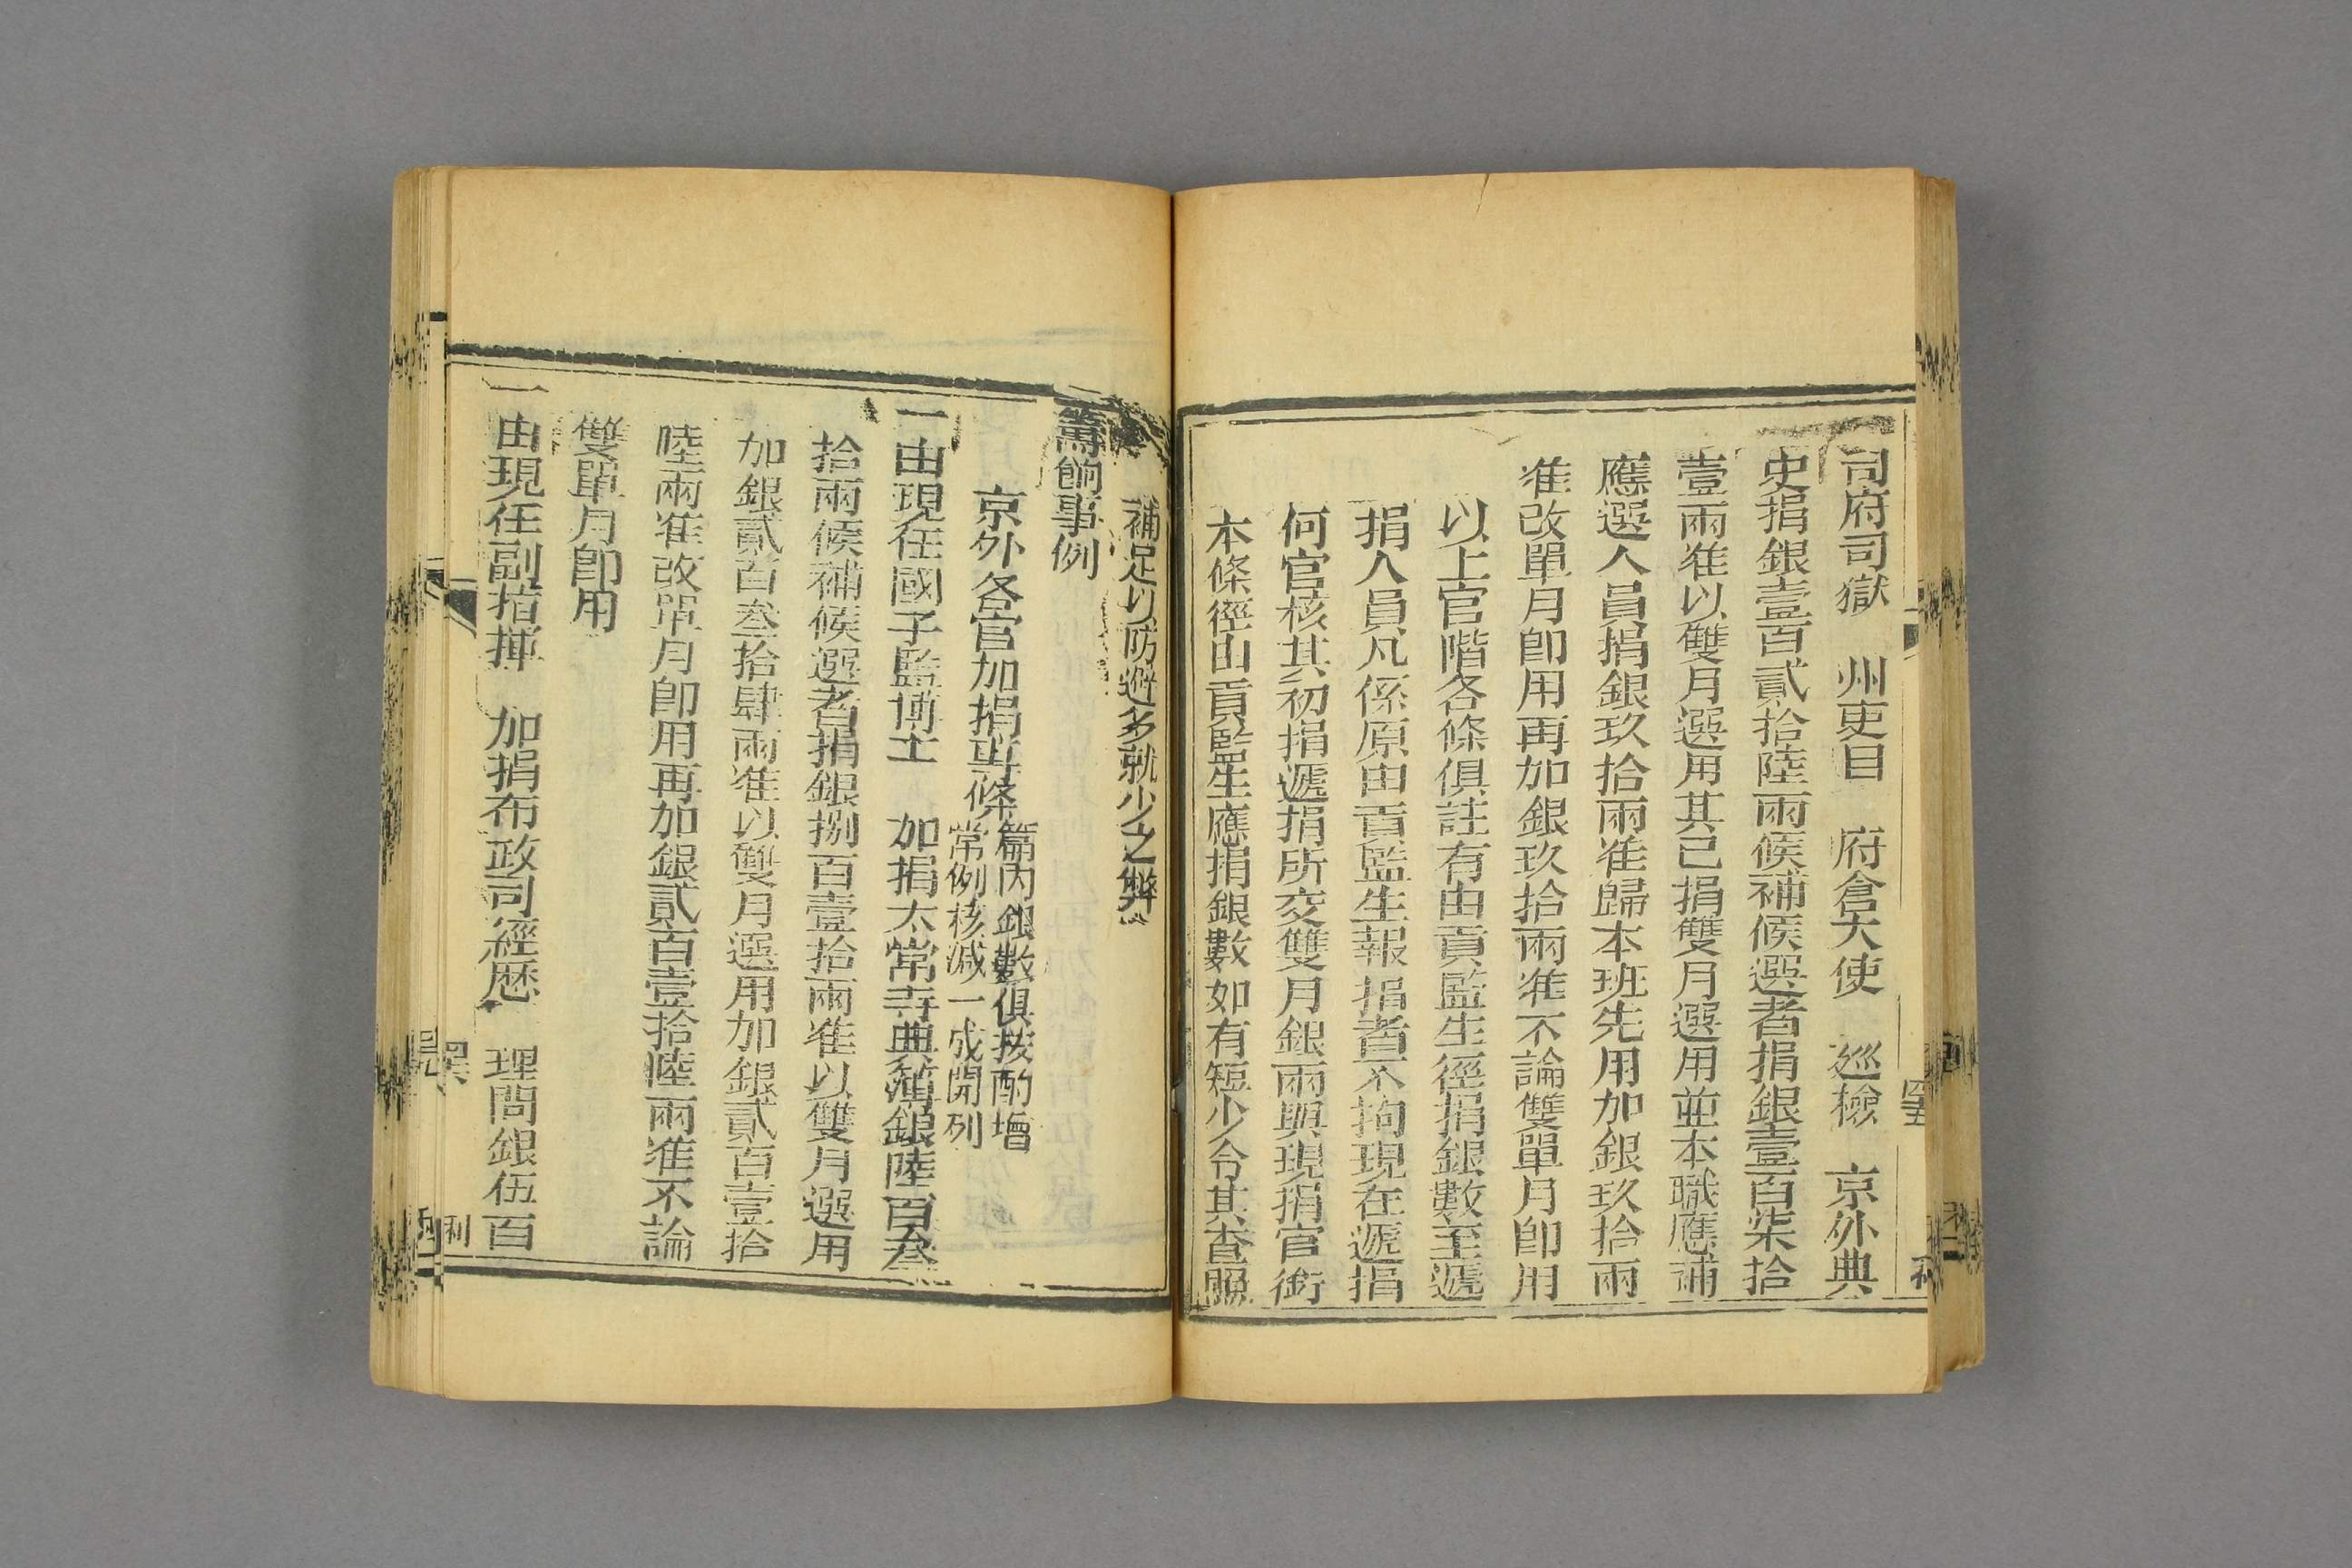 司府司獄　州吏目　府倉大使　巡檢　京外典
史捐銀壹百貳拾陸兩候補候選者捐銀壹百柒拾
壹兩准以雙月選用其已捐雙月選用並本職應補
應選人員捐銀玖拾兩准歸本班先用加銀玖拾兩
准改單月卽用再加銀玖拾兩准不論雙單月卽用
以上官階各條俱註有由貢監生徑捐銀數至遞
捐人員凡係原由貢監生報捐者不拘現在遞捐
何官核其初捐遞捐所交雙月銀兩與現捐官銜
本條徑由貢監生應捐銀數如有短少令其查照
補足以防避多就少之弊
籌餉事例
京外各官加捐專條篇內銀數俱按酌增
常例核減一成開列
一由現任國子監博士　加捐太常寺典簿銀陸百叁
拾兩候補候選者捐銀捌百壹拾兩准以雙月選用
加銀貳百叁拾肆兩准以雙月選用加銀貳百壹拾
陸兩准改單月卽用再加銀貳百壹拾陸兩准不論
雙單月卽用
一由現任副指揮　加捐布政司經歷　理問銀伍百